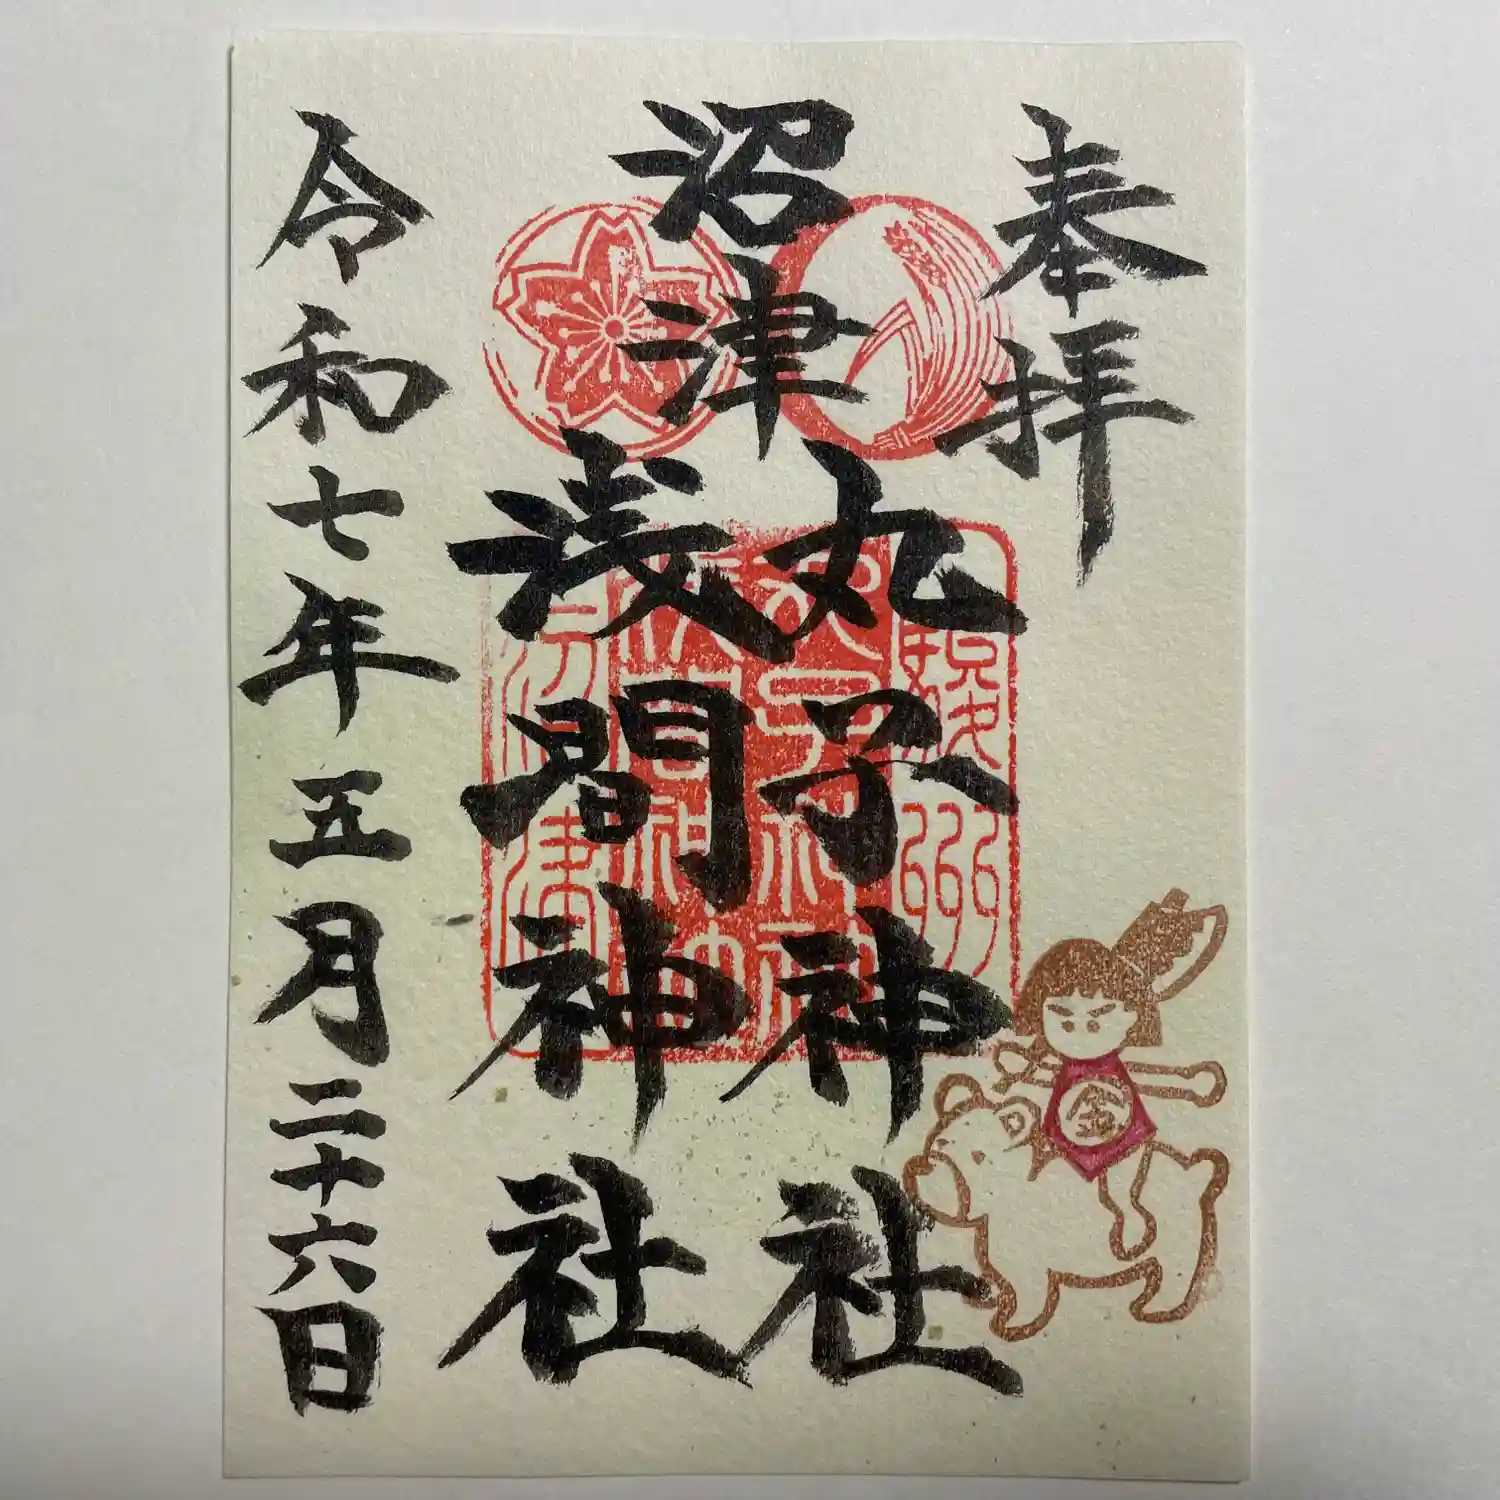 奉拝
沼津
丸子神社
浅間神社
令和七年五月二十六日
金